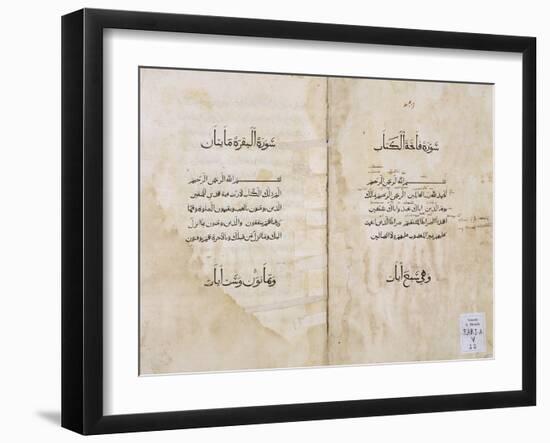 سورة فاتحة الكتاب
بسم الله الرحمن الرحيم
الحمد لله رب العالمين الرحمن الرحيم ملك
يوم الدين اياك نعبد واياك نستعين
اهدنا الصراط المستقيم صراط الذين انعمت
عليهم غير المغضوب عليهم ولا الضالين
وهي سبع آيات
سورة البقرة مايتان
بسم الله الرحمن الرحيم
الم ذلك الكتاب لا ريب فيه هدى للمتقين
الذين يومنون بالغيب ويقيمون الصلوة ومما
رزقناهم ينفقون والذين يومنون بما انزل
اليك وما انزل من قبلك وبالاخرة هم يوقنون
وثمانون وست آيات
RARI A
V
22